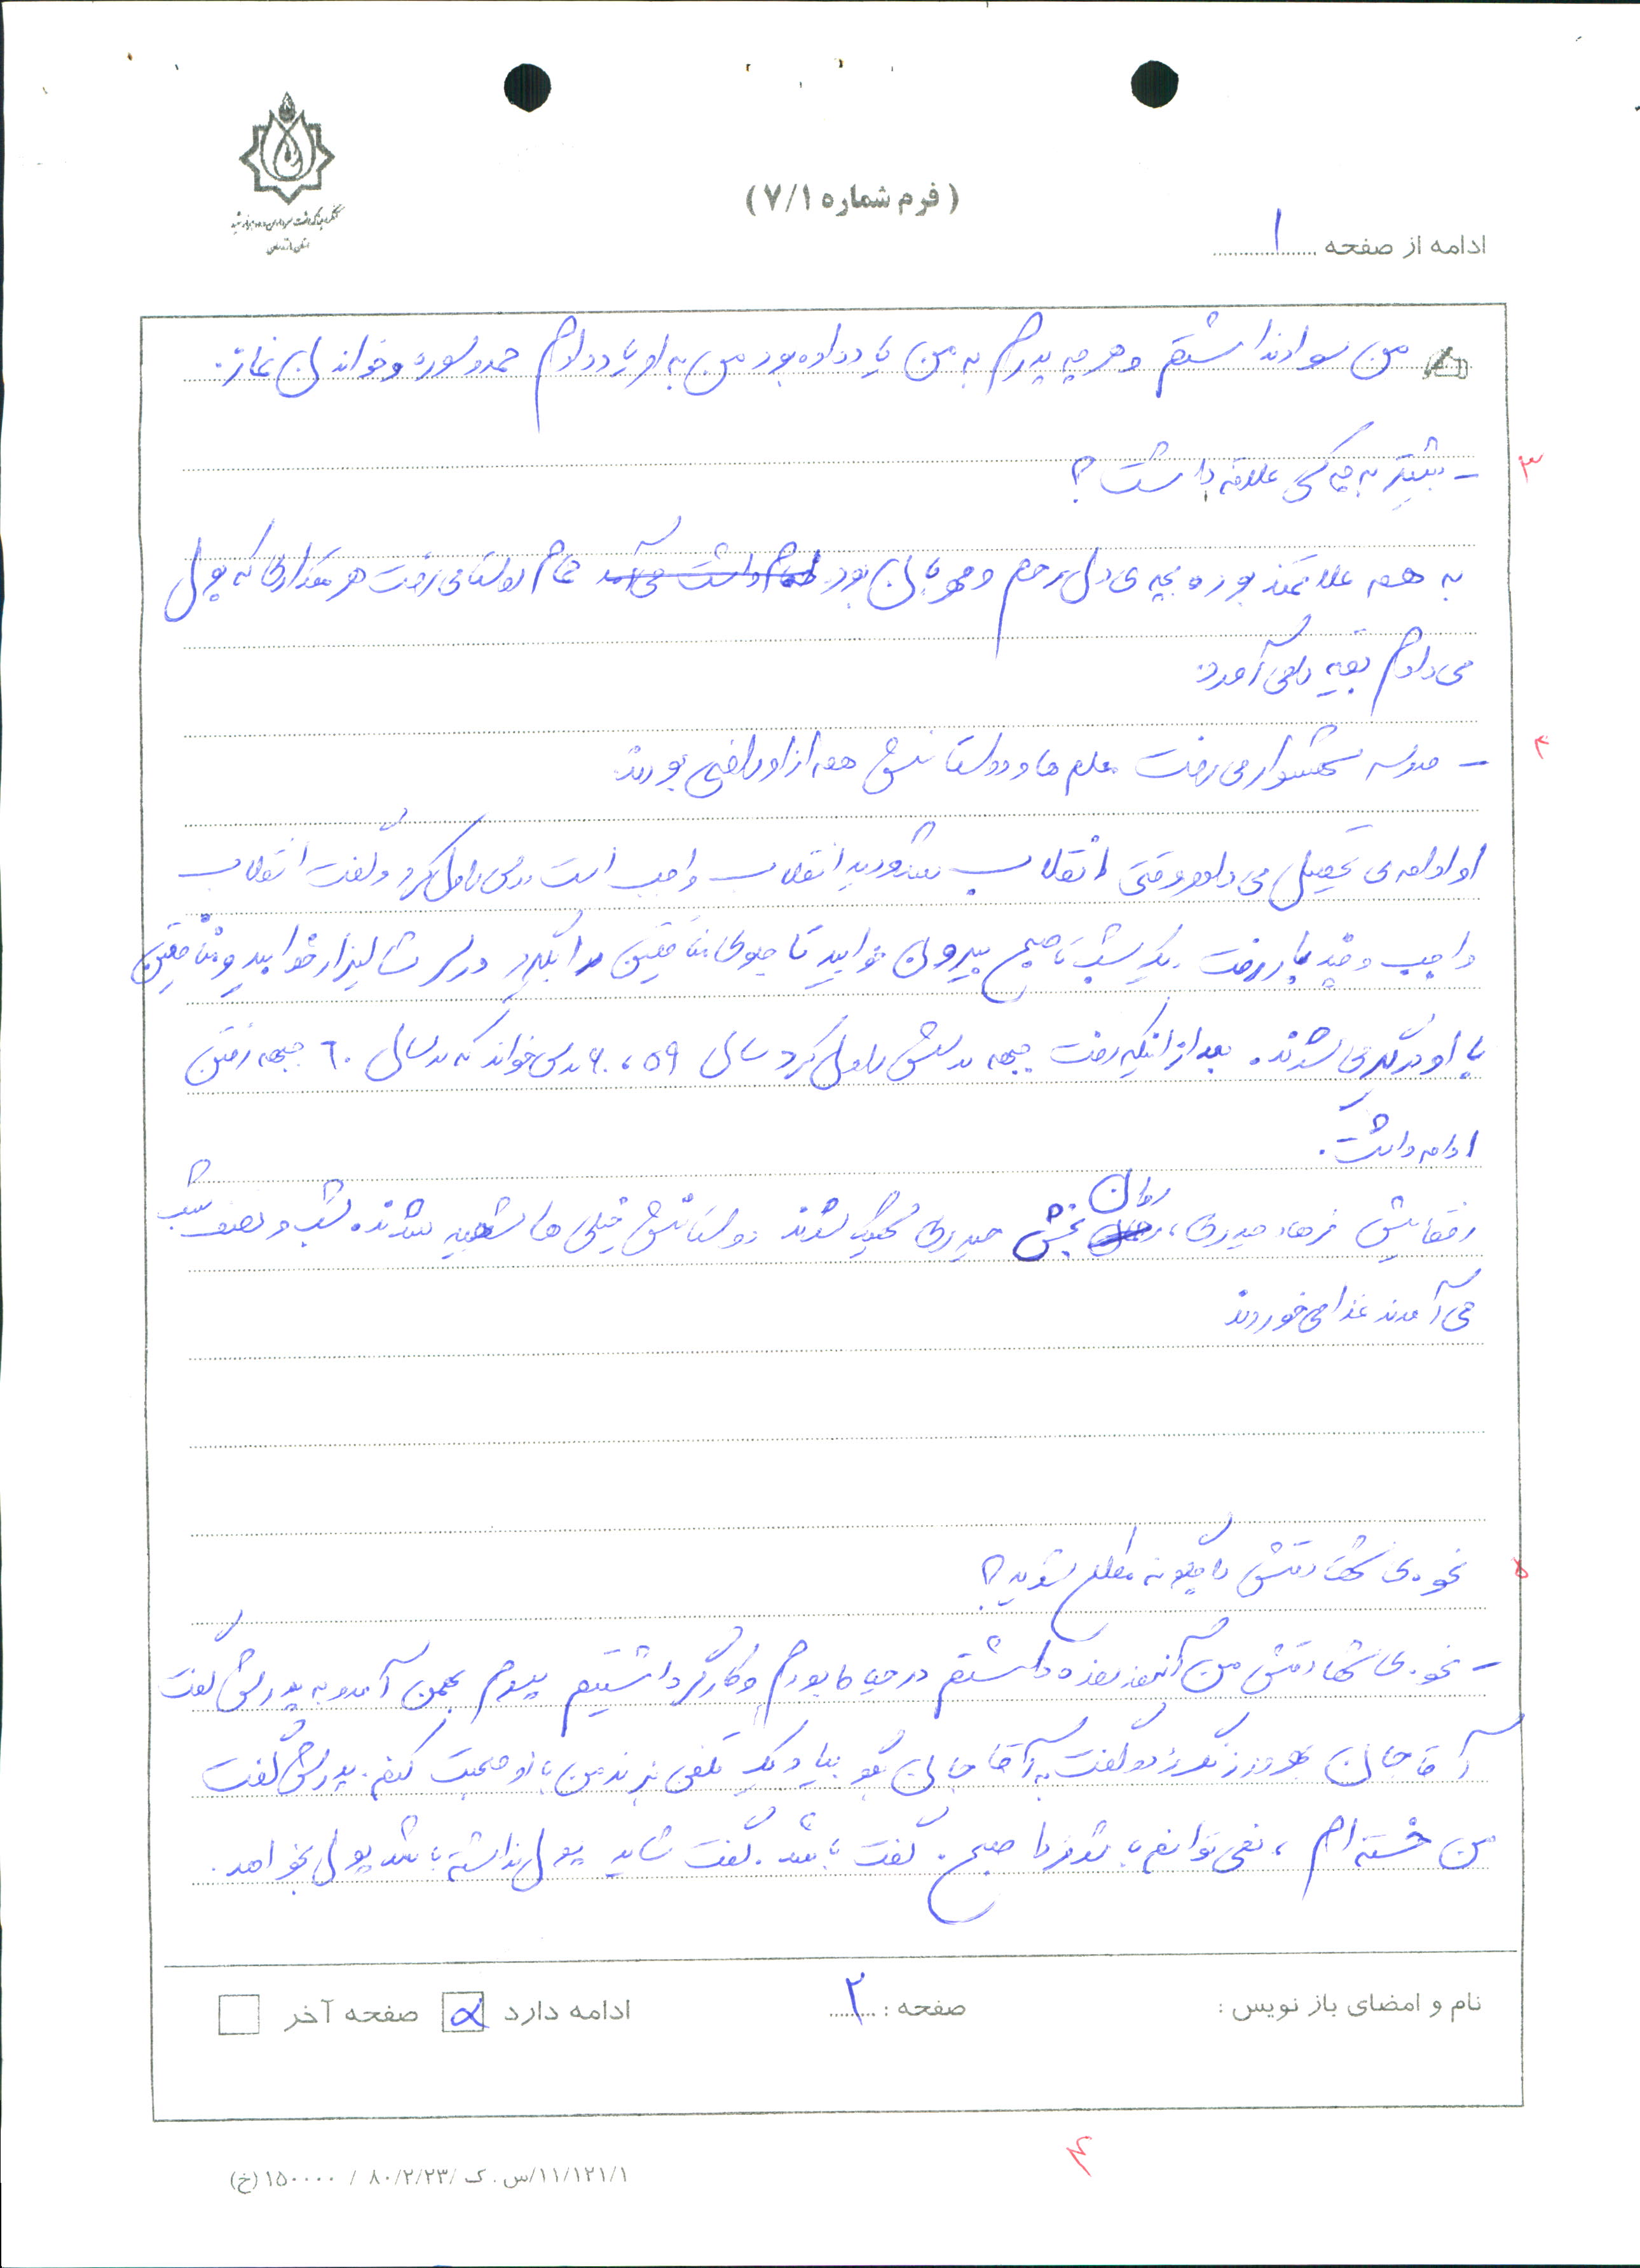 ( فرم شماره ۷/۱ )
کنگره بزرگداشت سرداران و ده هزار شهید
استان مازندران
ادامه از صفحه ۱
من سواد نداشتم و هر چه پدرم به من یاد داده بود من به او یاد دادم حمد و سوره و خواندن نماز.
۳
- بیشتر به چه کسی علاقه داشت؟
به همه علاقمند بود و بچه ی دل رحم و مهربان بود. تمام روستا می رفت هر مقداری که پول
می دادم بقیه را می آورد.
۴
- مدرسه می رفت معلم ها و دوستانش همه از او راضی بودند.
او ادامه ی تحصیل می داد و وقتی انقلاب شد و دید انقلاب واجب است درس را ول کرد و گفت انقلاب
واجب و چند بار رفت. یک شب تا صبح بیرون خوابید تا جلوی منافقین را بگیرد در سر شالیزار خوابید و منافقین
با او درگیر می شدند. بعد از اینکه رفت جبهه درسش را ول کرد سال ۵۹ ، ۶۰ درس خواند که در سال ۶۰ جبهه رفتن
ادامه داشت.
رفقایش فرهاد حیدری، رمان بخش حیدری شدند دوستانش خیلی ها شهید شدند. شب و نصف شب
می آمدند غذا می خوردند
۵
نحوه ی شهادتش را چگونه مطلع شدید؟
- نحوه ی شهادتش من آنروز روزه داشتم در حیاط بودم و کارگر داشتیم پسرم بهمن آمد و به پدرش گفت
آقا جان بهروز زنگ زد و گفت به آقا جان بگو بیاد یک تلفنی بزند من با او صحبت کنم. پدرش گفت
من خسته ام ، نمی توانم باشد فردا صبح. گفت باشد. گفت شاید پول نداشته باشد پول بخواهد.
نام و امضای باز نویس :
صفحه : ۲
ادامه دارد
صفحه آخر
۴
۱۱/۱۲۱/۱/س.ک /۸۰/۲/۲۳ / ۱۵۰۰۰۰ (خ)